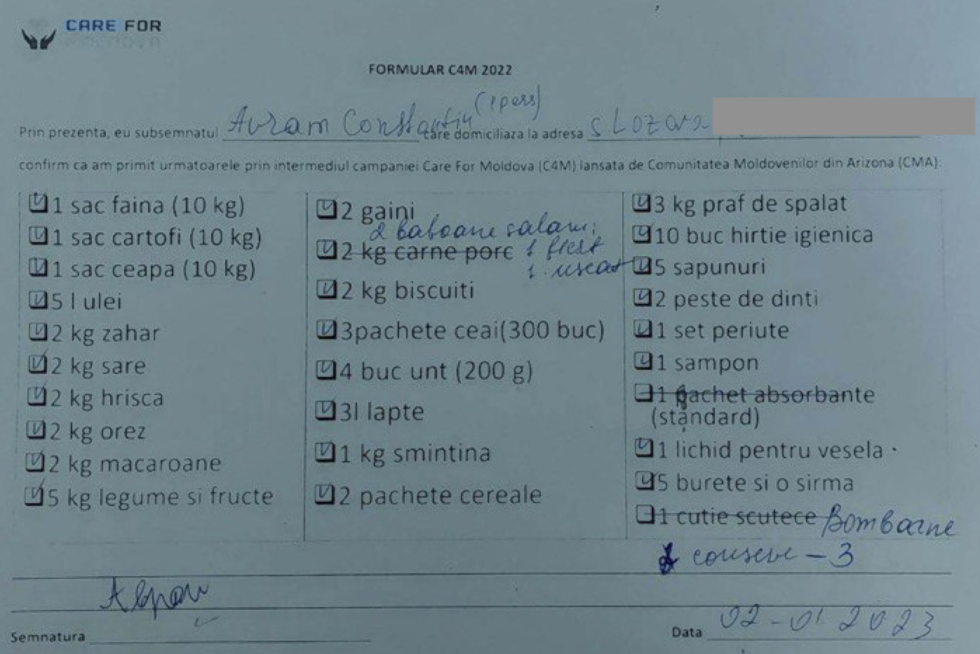 CARE FOR
MOLDOVA
FORMULAR C4M 2022
(1 pers)
Prin prezenta, eu subsemnatul Avram Constantin care domiciliaza la adresa s Lozova
confirm ca am primit urmatoarele prin intermediul campaniei Care For Moldova (C4M) lansata de Comunitatea Moldovenilor din Arizona (CMA):
1 sac faina (10 kg)
1 sac cartofi (10 kg)
1 sac ceapa (10 kg)
5 l ulei
2 kg zahar
2 kg sare
2 kg hrisca
2 kg orez
2 kg macaroane
5 kg legume si fructe
2 gaini
2 baboane salam:
2 kg carne porc 1 fiert
1 uscat
2 kg biscuiti
3pachete ceai(300 buc)
4 buc unt (200 g)
3l lapte
1 kg smintina
2 pachete cereale
3 kg praf de spalat
10 buc hirtie igienica
5 sapunuri
2 peste de dinti
1 set periute
1 sampon
1 pachet absorbante
(standard)
1 lichid pentru vesela
5 burete si o sirma
1 cutie scutece Bomboane
conseve - 3
Semnatura
Data 02-01.2023